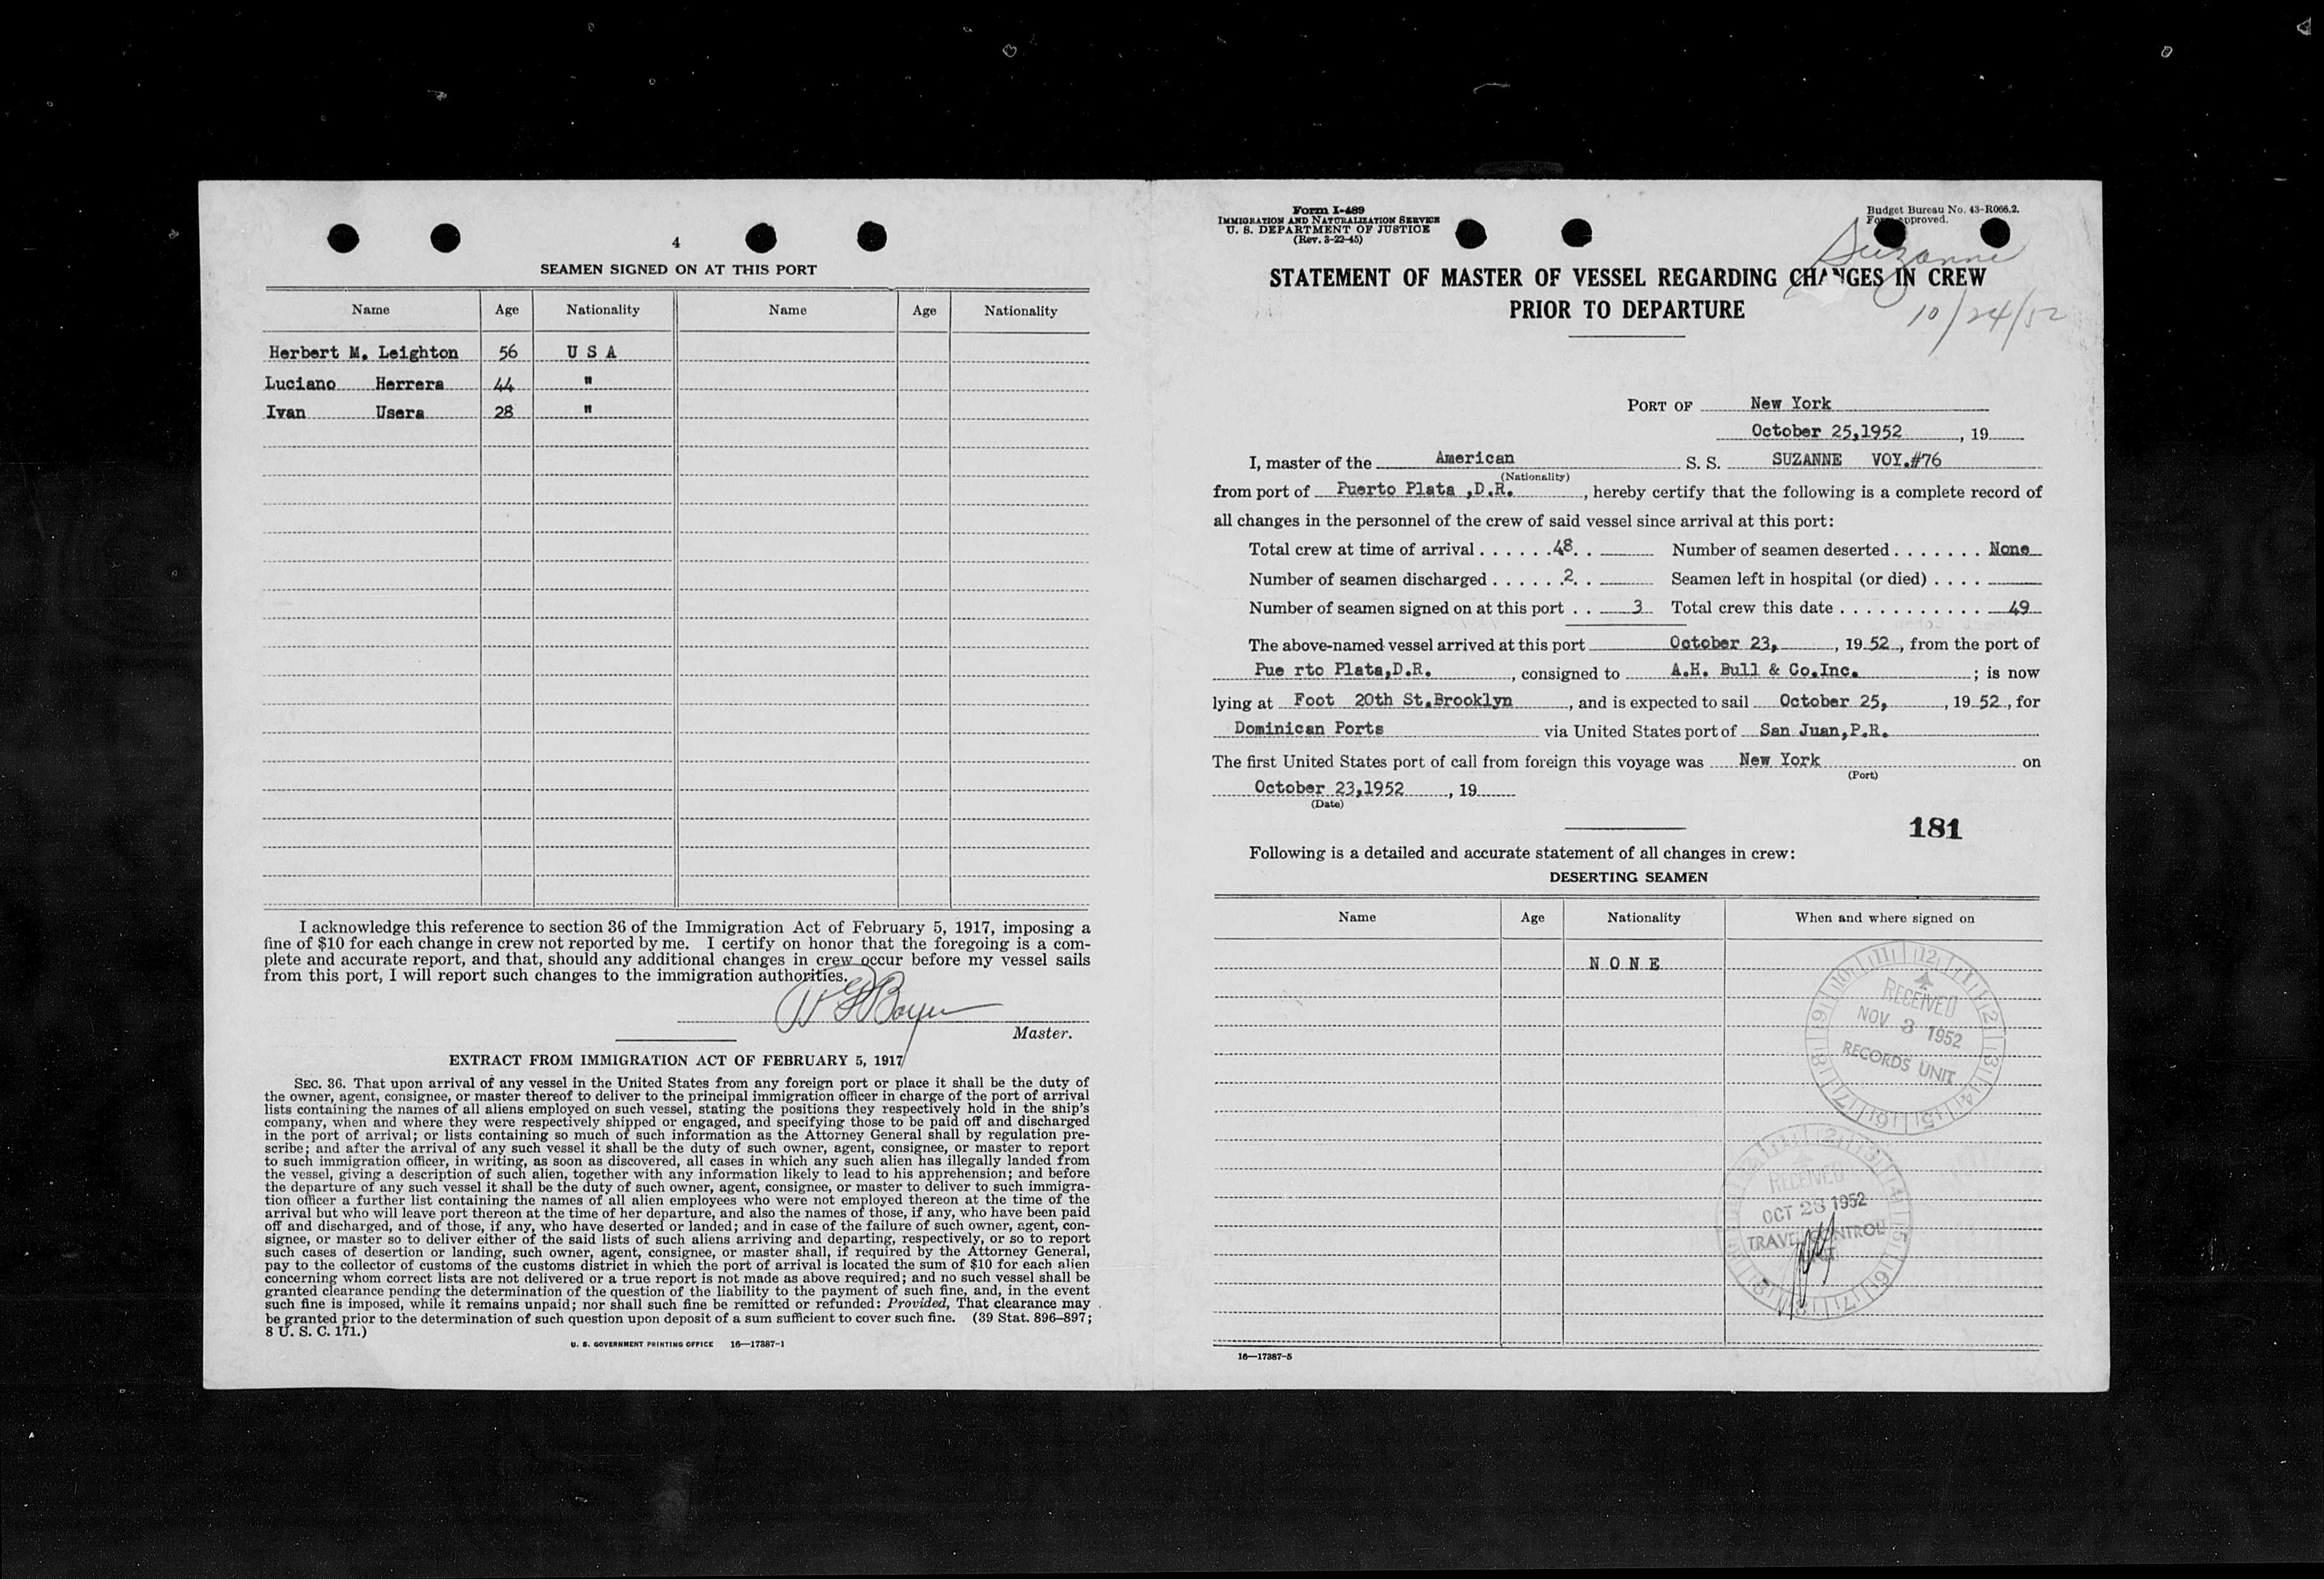 4
SEAMEN SIGNED ON AT THIS PORT
Name Age Nationality Name Age Nationality
Herbert M. Leighton 56 U S A
Luciano Herrera 44 "
Ivan Usera 28 "
I acknowledge this reference to section 36 of the Immigration Act of February 5, 1917, imposing a
fine of $10 for each change in crew not reported by me. I certify on honor that the foregoing is a com-
plete and accurate report, and that, should any additional changes in crew occur before my vessel sails
from this port, I will report such changes to the immigration authorities.
Master.
EXTRACT FROM IMMIGRATION ACT OF FEBRUARY 5, 1917
SEC. 36. That upon arrival of any vessel in the United States from any foreign port or place it shall be the duty of
the owner, agent, consignee, or master thereof to deliver to the principal immigration officer in charge of the port of arrival
lists containing the names of all aliens employed on such vessel, stating the positions they respectively hold in the ship's
company, when and where they were respectively shipped or engaged, and specifying those to be paid off and discharged
in the port of arrival; or lists containing so much of such information as the Attorney General shall by regulation pre-
scribe; and after the arrival of any such vessel it shall be the duty of such owner, agent, consignee, or master to report
to such immigration officer, in writing, as soon as discovered, all cases in which any such alien has illegally landed from
the vessel, giving a description of such alien, together with any information likely to lead to his apprehension; and before
the departure of any such vessel it shall be the duty of such owner, agent, consignee, or master to deliver to such immigra-
tion officer a further list containing the names of all alien employees who were not employed thereon at the time of the
arrival but who will leave port thereon at the time of her departure, and also the names of those, if any, who have been paid
off and discharged, and of those, if any, who have deserted or landed; and in case of the failure of such owner, agent, con-
signee, or master so to deliver either of the said lists of such aliens arriving and departing, respectively, or so to report
such cases of desertion or landing, such owner, agent, consignee, or master shall, if required by the Attorney General,
pay to the collector of customs of the customs district in which the port of arrival is located the sum of $10 for each alien
concerning whom correct lists are not delivered or a true report is not made as above required; and no such vessel shall be
granted clearance pending the determination of the question of the liability to the payment of such fine, and, in the event
such fine is imposed, while it remains unpaid; nor shall such fine be remitted or refunded: Provided, That clearance may
be granted prior to the determination of such question upon deposit of a sum sufficient to cover such fine. (39 Stat. 896–897;
8 U. S. C. 171.)
U. S. GOVERNMENT PRINTING OFFICE 16—17387-1
Form I-489
IMMIGRATION AND NATURALIZATION SERVICE
U. S. DEPARTMENT OF JUSTICE
(Rev. 3-22-45)
Budget Bureau No. 43-R066.2.
Form approved.
Suzanne
10/24/52
STATEMENT OF MASTER OF VESSEL REGARDING CHANGES IN CREW
PRIOR TO DEPARTURE
PORT OF New York
October 25,1952, 19
I, master of the American S. S. SUZANNE VOY.#76
(Nationality)
from port of Puerto Plata ,D.R., hereby certify that the following is a complete record of
all changes in the personnel of the crew of said vessel since arrival at this port:
Total crew at time of arrival 48 Number of seamen deserted None
Number of seamen discharged 2 Seamen left in hospital (or died)
Number of seamen signed on at this port 3 Total crew this date 49
The above-named vessel arrived at this port October 23, , 19 52, from the port of
Pue rto Plata,D.R. , consigned to A.H. Bull & Co.Inc. ; is now
lying at Foot 20th St.Brooklyn , and is expected to sail October 25, , 19 52, for
Dominican Ports via United States port of San Juan,P.R.
The first United States port of call from foreign this voyage was New York on
(Port)
October 23,1952 , 19
(Date)
181
Following is a detailed and accurate statement of all changes in crew:
DESERTING SEAMEN
Name Age Nationality When and where signed on
N O N E
RECEIVED
NOV 3 1952
RECORDS UNIT
RECEIVED
OCT 28 1952
TRAVEL CONTROL
16—17387-5